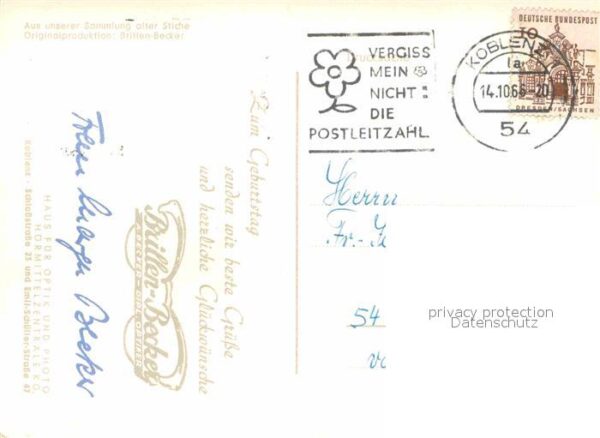 Aus unserer Sammlung alter Stiche
Originalproduktion: Brillen-Becker
Zum Geburtstag
senden wir beste Grüße
und herzliche Glückwünsche
Brillen-Becker
Becker
HAUS FÜR OPTIK UND PHOTO
HÖRMITTELZENTRALE KG.
Koblenz · Schloßstraße 25 und Emil-Schüller-Straße 47
VERGISS
MEIN
NICHT:
DIE
POSTLEITZAHL
KOBLENZ
1a
14.10.66-20
54
DEUTSCHE BUNDESPOST
10
DRESDEN/SACHSEN
Herrn
Fr.
54
privacy protection
Datenschutz